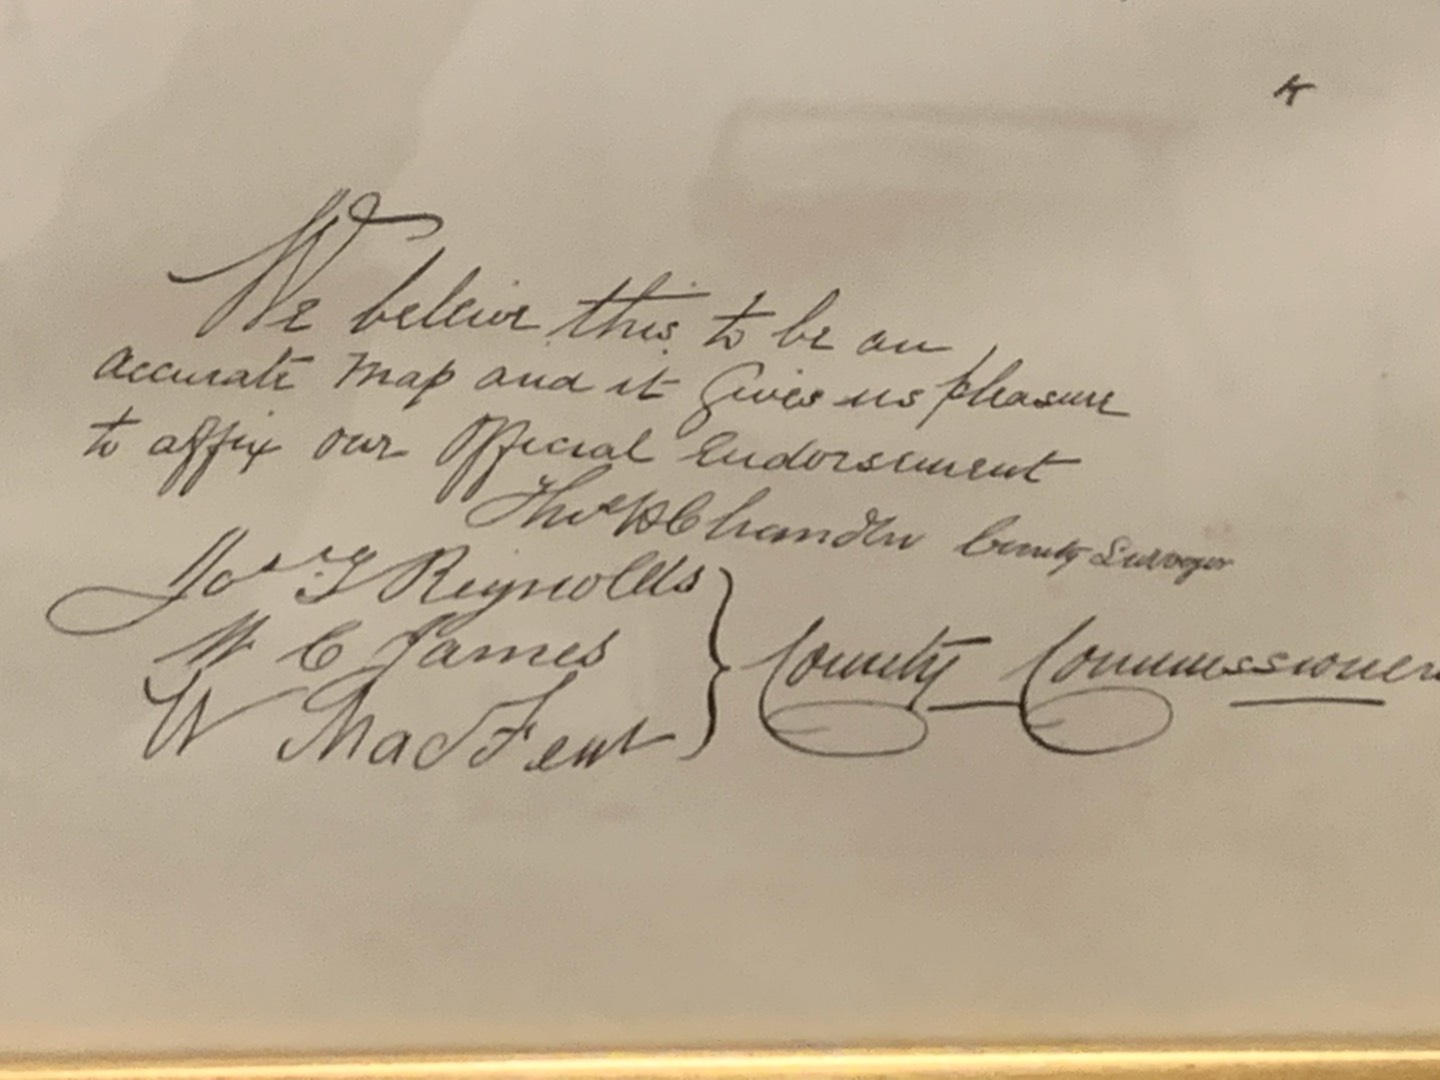 K
We beleive this to be an
accurate Map and it Gives us pleasure
to affix our Official Endorsement
Thos H Chandler County Surveyor
Jos T Reynolds
W C James
W
County Commissioner